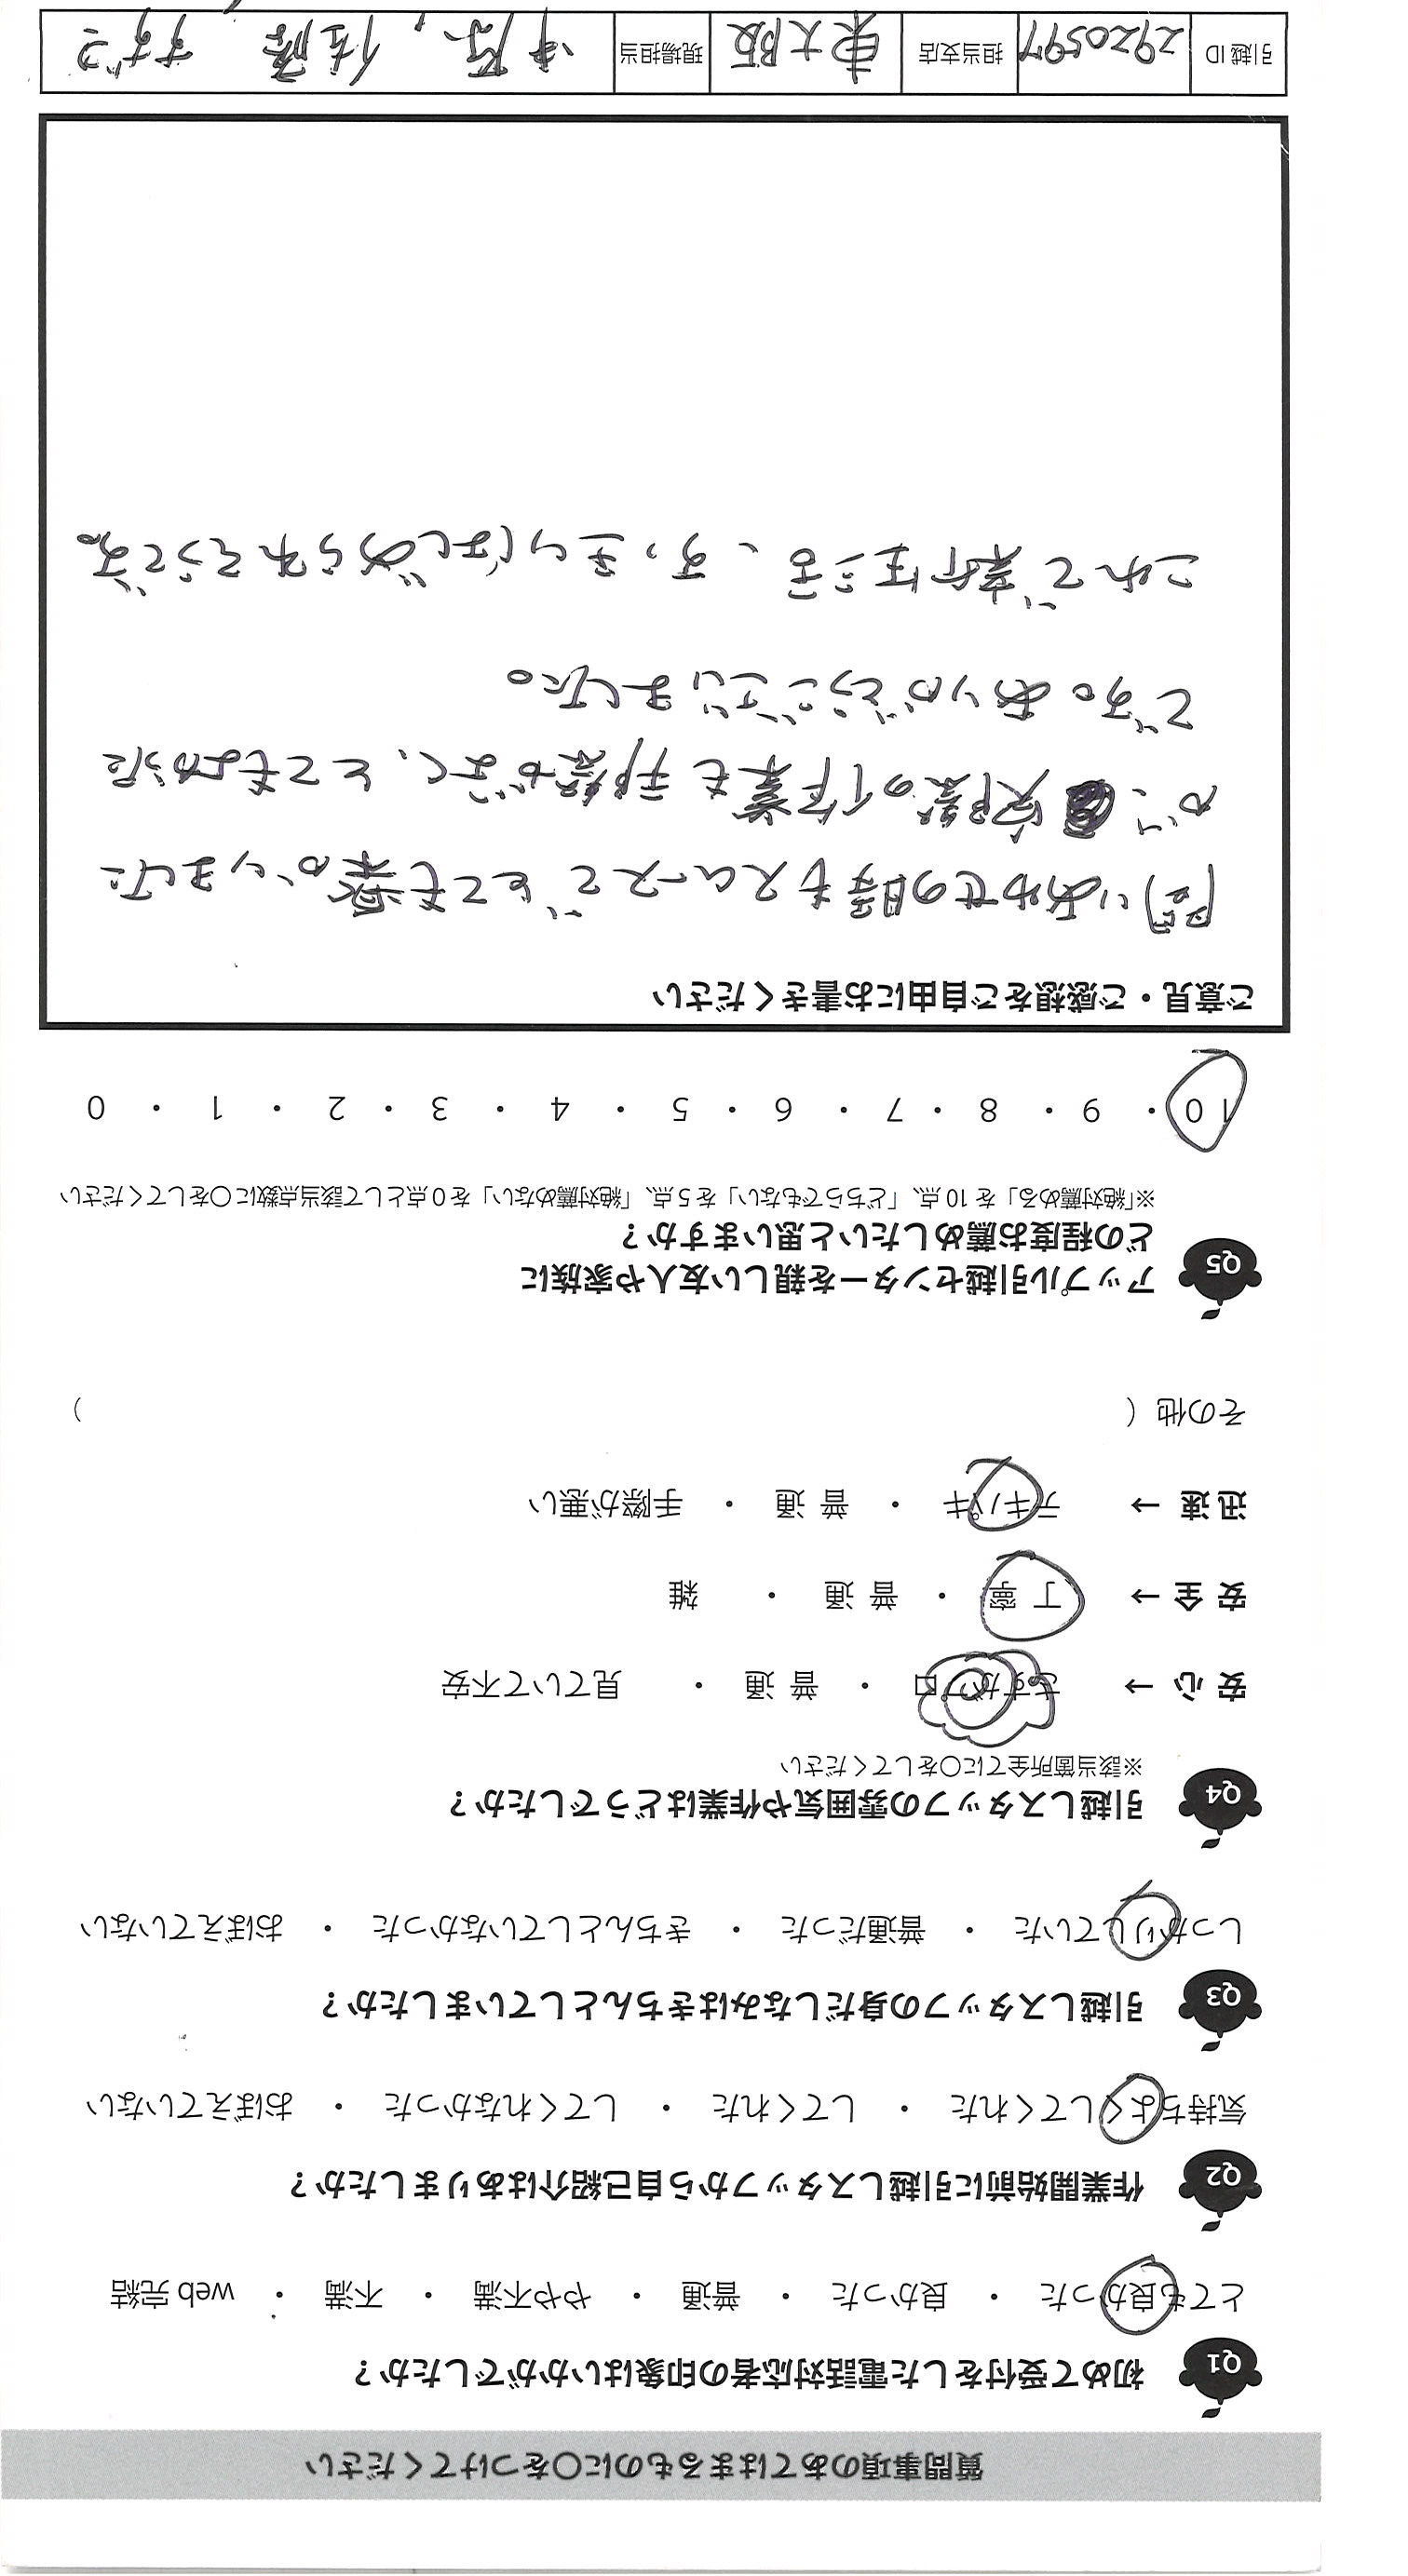 質問事項のあてはまるものに○をつけてください
Q1 初めて受付をした電話対応者の印象はいかがでしたか？
とても良かった ・ 良かった ・ 普通 ・ やや不満 ・ 不満 ・ web 完結
Q2 作業開始前に引越しスタッフから自己紹介はありましたか？
気持ちよくしてくれた ・ してくれた ・ してくれなかった ・ おぼえていない
Q3 引越しスタッフの身だしなみはきちんとしていましたか？
しっかりしていた ・ 普通だった ・ きちんとしていなかった ・ おぼえていない
Q4 引越しスタッフの雰囲気や作業はどうでしたか？
※該当箇所全てに○をしてください
安心 → さすがプロ ・ 普通 ・ 見ていて不安
安全 → 丁寧 ・ 普通 ・ 雑
迅速 → テキパキ ・ 普通 ・ 手際が悪い
その他（ ）
Q5 アップル引越センターを親しい友人や家族に
どの程度お薦めしたいと思いますか？
※「絶対薦める」を 10 点、「どちらでもない」を 5 点、「絶対薦めない」を 0 点として該当点数に○をしてください
10 ・ 9 ・ 8 ・ 7 ・ 6 ・ 5 ・ 4 ・ 3 ・ 2 ・ 1 ・ 0
ご意見・ご感想をご自由にお書きください
問いあわせの時もスムーズでとても楽かいました
が、実際の作業も手際がよく、とてもよかった
です。ありがとうございました。
これで新生活、すっきりはじめられそうです。
引越 ID 2920597 担当支店 東大阪 現場担当 佐藤